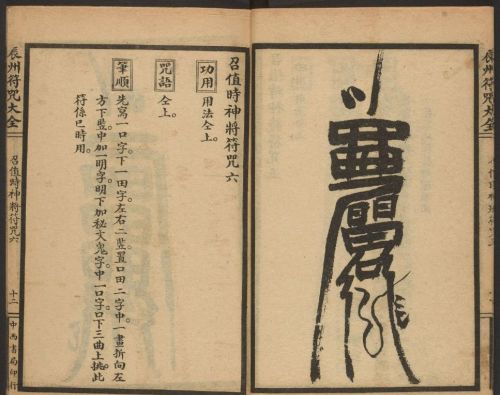 辰州符咒大全
召值時神將符咒六
功用 用法仝上。
咒語 仝上。
筆順 先寫一口字。下一田字。左右二豎。置口田二字中。一畫折向左
方下豎。中加一明字。明下加秘文鬼字。中一口字。口下三曲上挑。此
符係巳時用。
辰州符咒大全
召值時神將符咒六
十二
中西書局印行